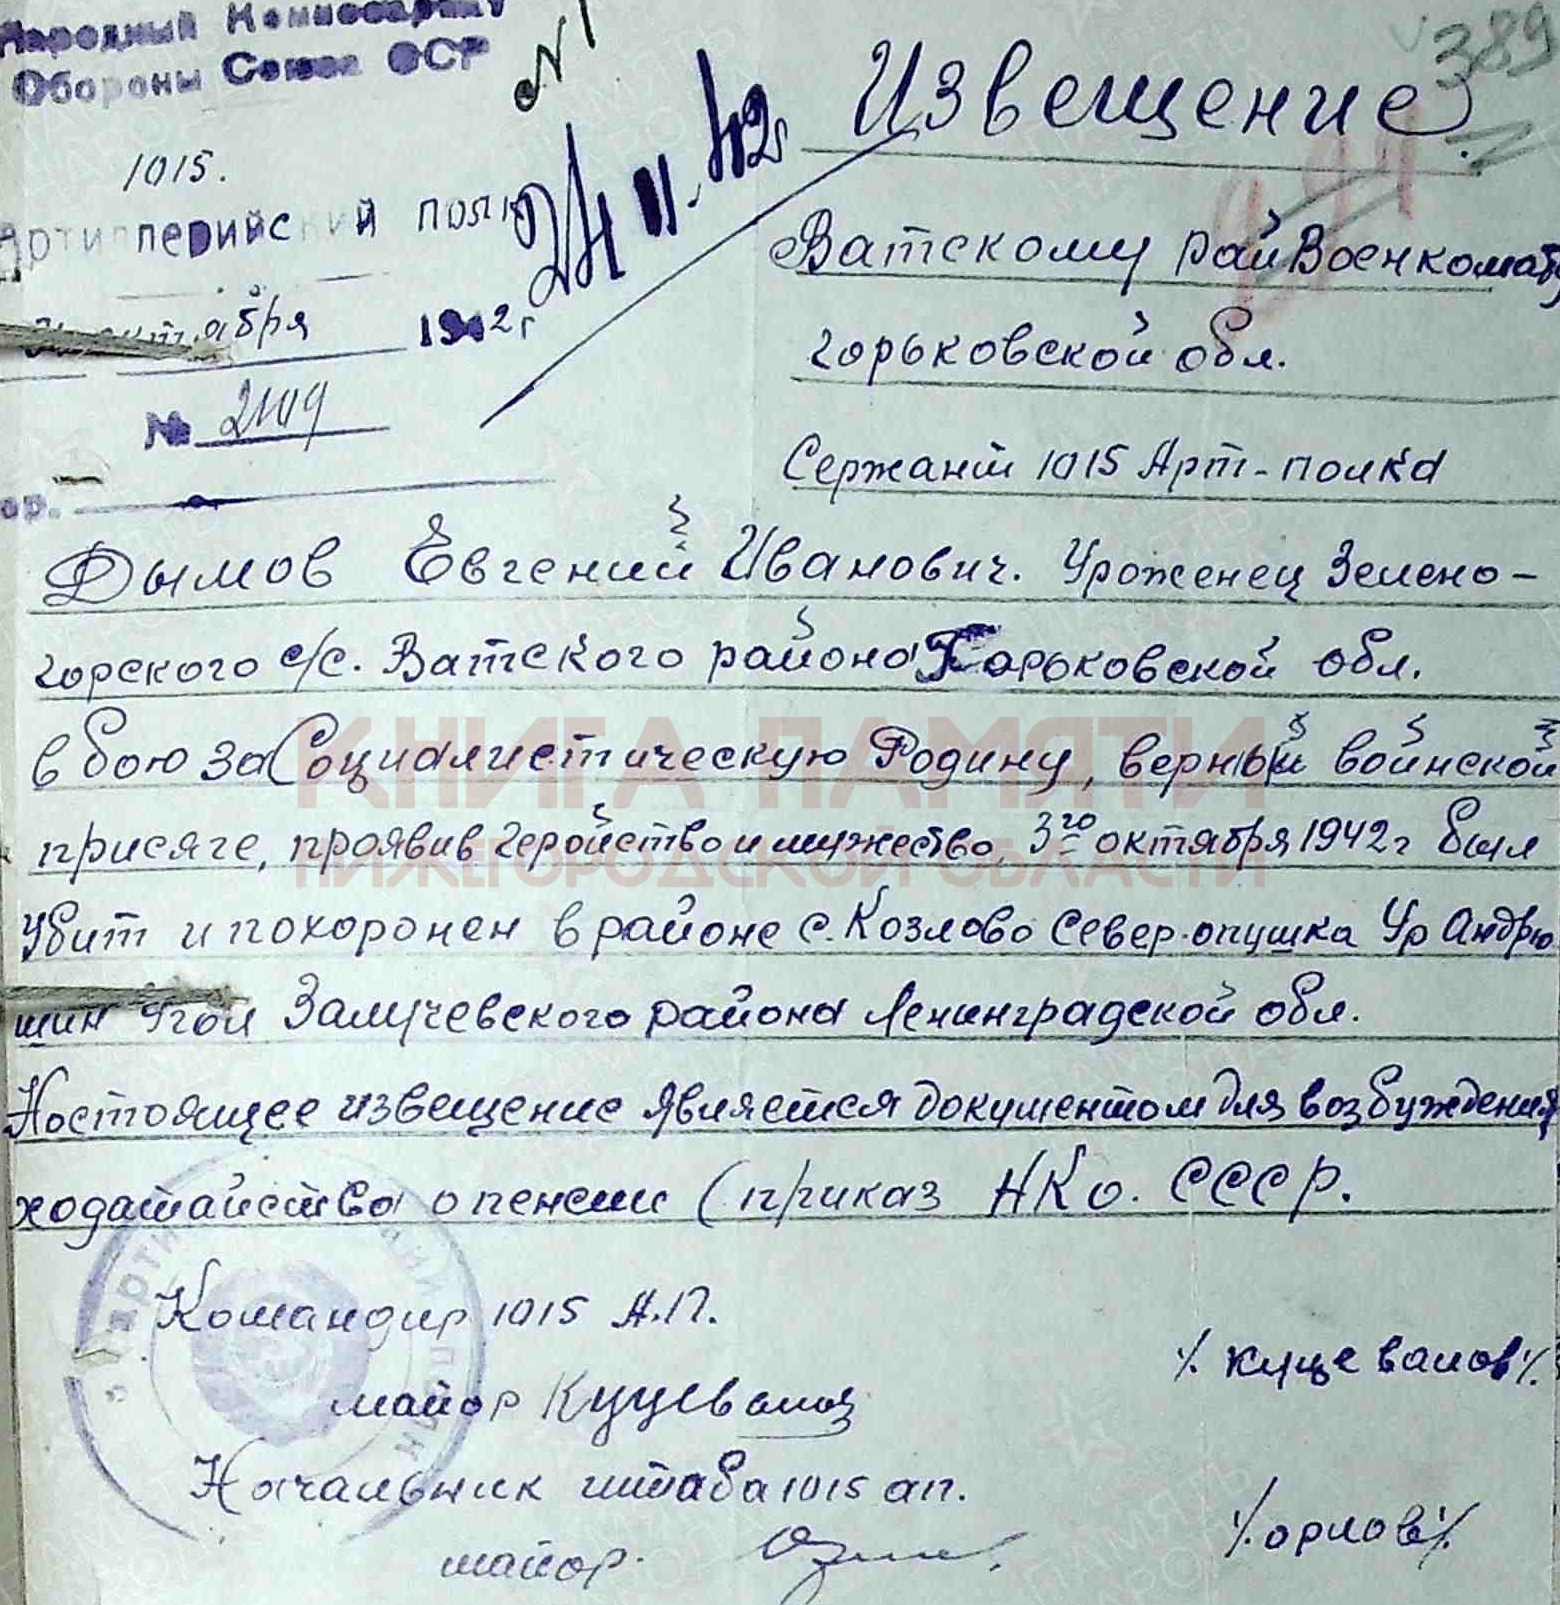 Народный Комиссариат
Обороны Союза ССР
№1
389
1015.
Артиллерийский полк
24 II. 42г
Извещение
Ватскому райвоенкомату
октября 1942г
горьковской обл.
№ 2109
Сержант 1015 Арт-полка
ор.
Дымов Евгений Иванович. Уроженец Зелено-
горского с/с. Ватского района Горьковской обл.
в бою за Социалистическую Родину, верный воинской
присяге, проявив геройство и мужество, 3го октября 1942г был
убит и похоронен в районе с. Козлово Север. опушка Ур Андрю
шин Угол Залучевского района Ленинградской обл.
Настоящее извещение является документом для возбуждения
ходатайства о пенсии (приказ НКо. СССР.
Командир 1015 А.П.
майор Куцевалов
/. куцевалов /.
Начальник штаба 1015 ап.
майор.
/. орлов /.
КНИГА ПАМЯТИ
НИЖЕГОРОДСКОЙ ОБЛАСТИ